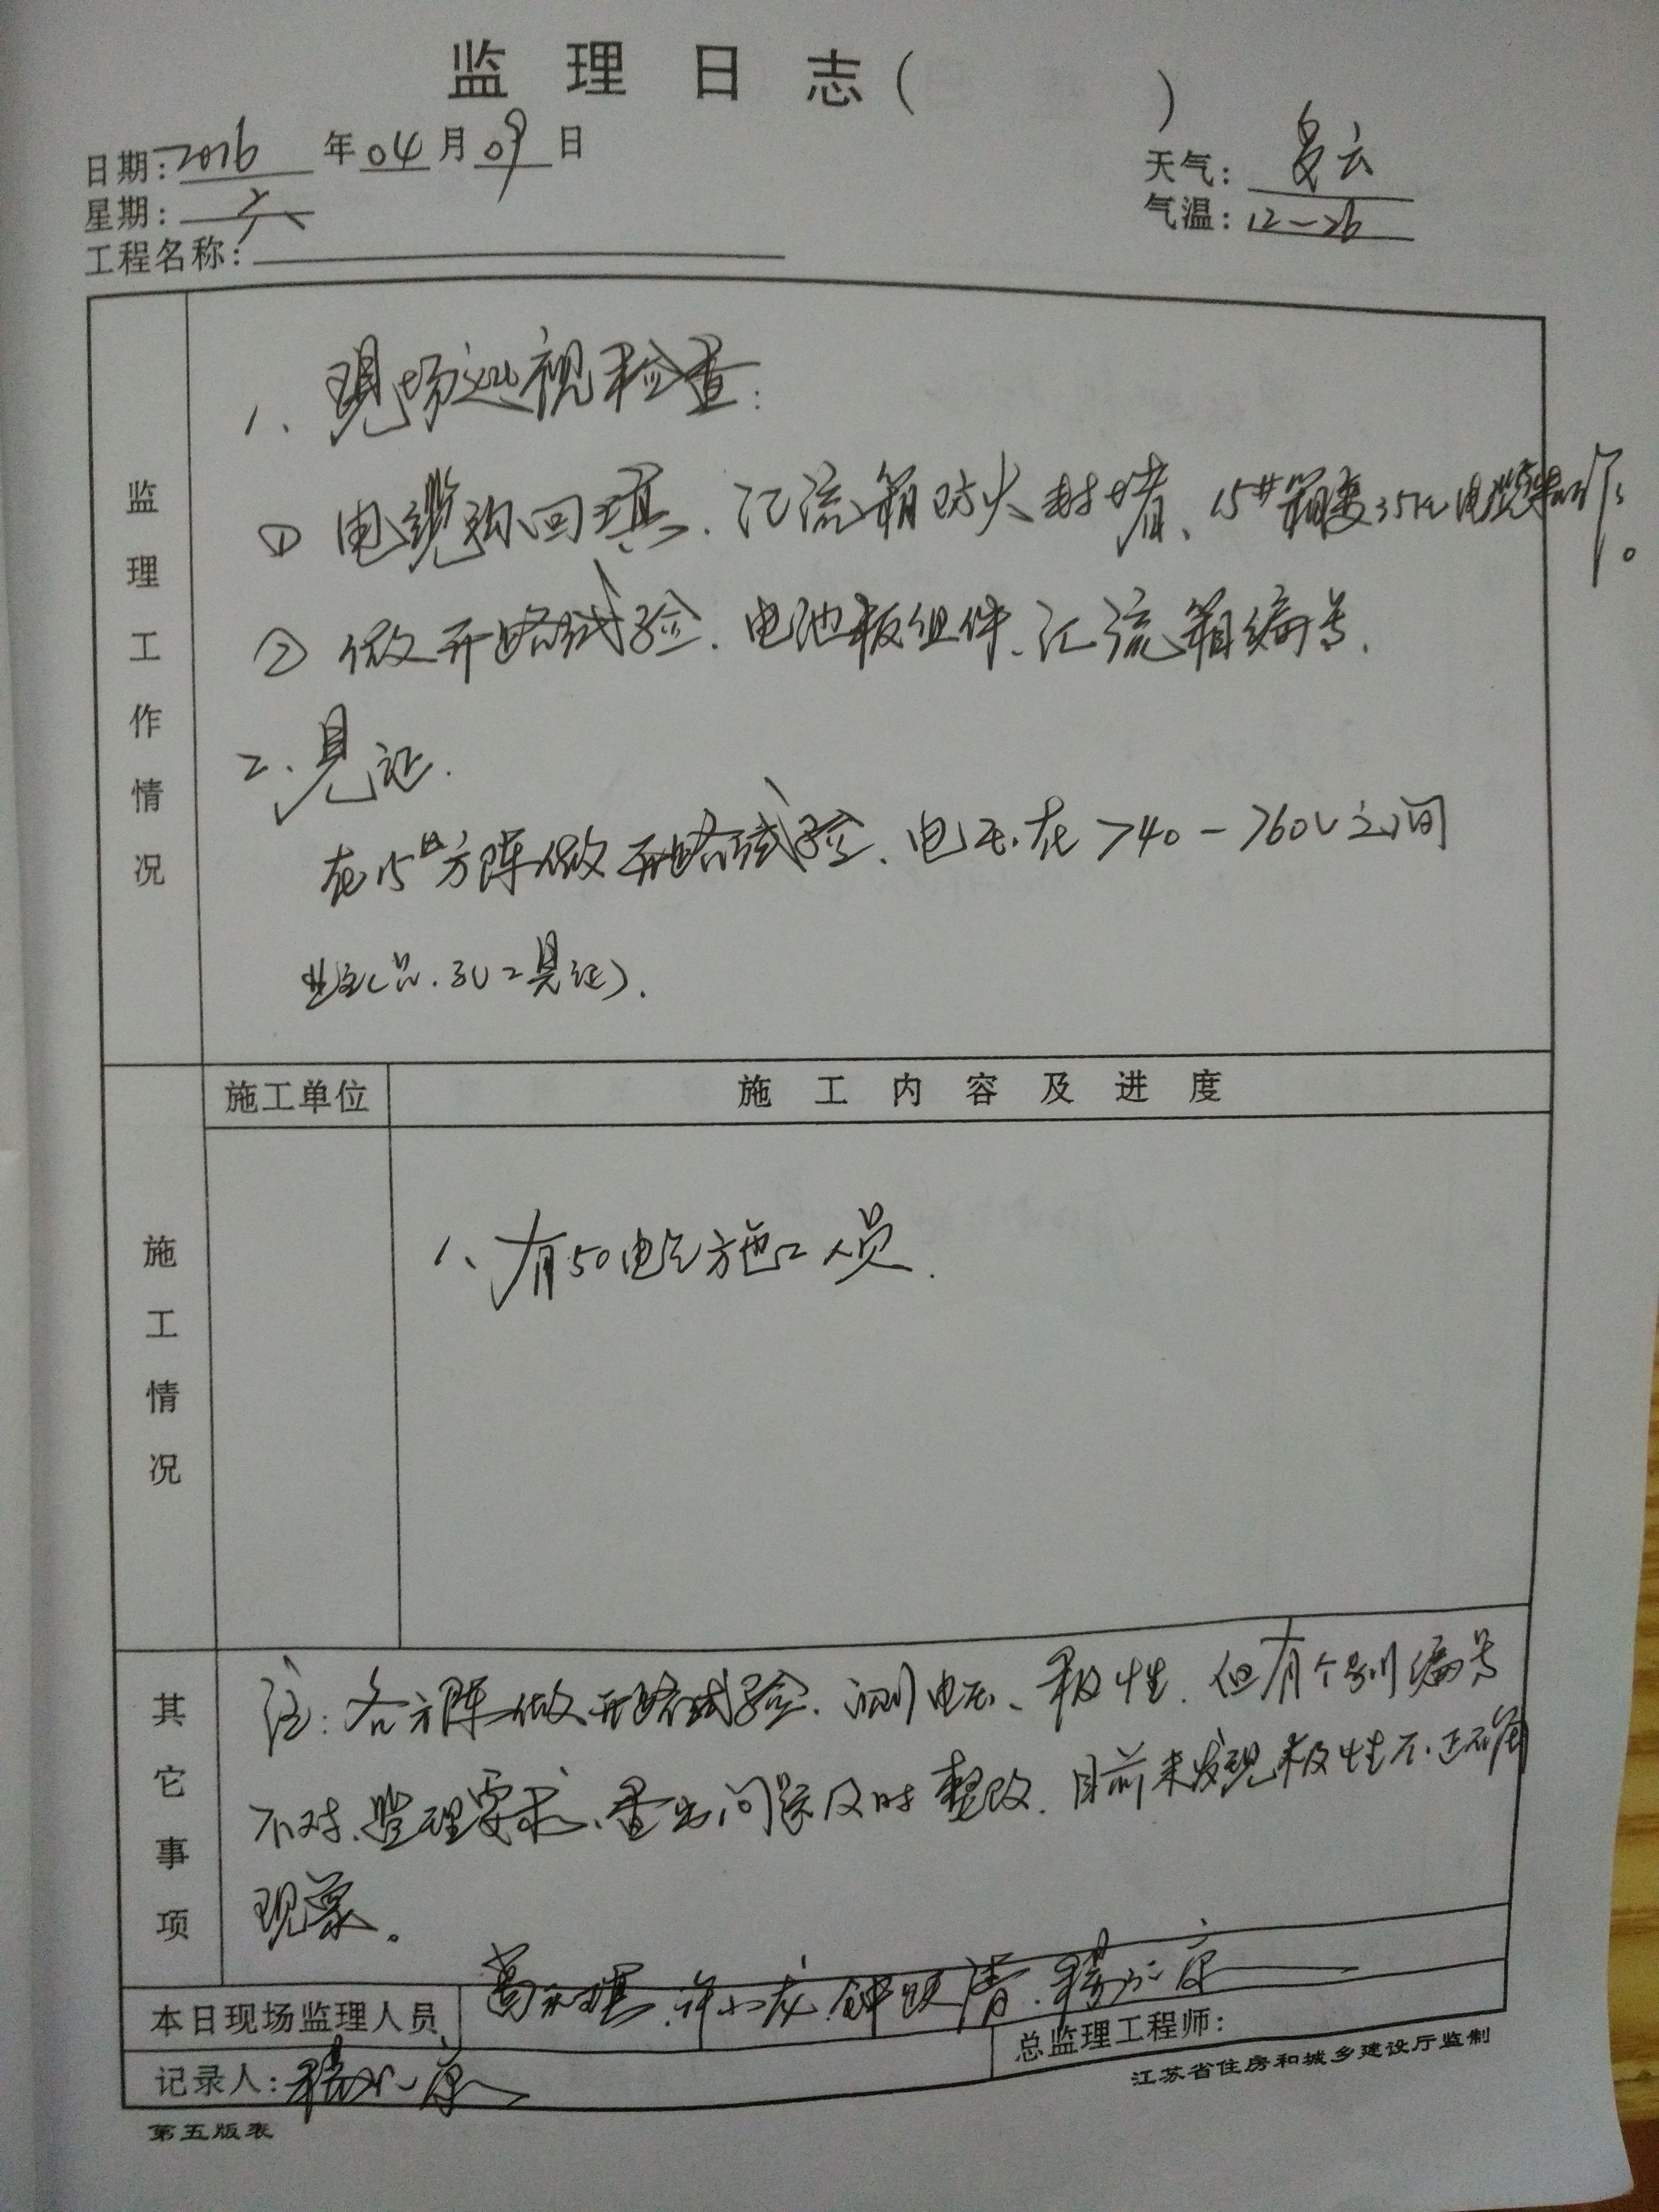 监理日志( )
日期:2016年04月09日
天气:多云
星期:六
气温:12-26
工程名称:
监理工作情况
1、现场巡视检查:
① 电缆沟回填、汇流箱防火封堵、15#箱变35kv电缆头制作。
② 做开路试验、电池板组件、汇流箱编号.
2、见证.
在15#方阵做开路试验、电压在740-760V之间
业主(
见证).
施工单位
施工内容及进度
施工情况
1、有50电气施工人员.
其它事项
注:各方阵做开路试验、测电压、极性.但有个别编号
不对、监理要求、查出问题及时整改.目前未发现极性不正确
现象。
本日现场监理人员
许小龙.钟跃清.
总监理工程师:
记录人:
江苏省住房和城乡建设厅监制
第五版表